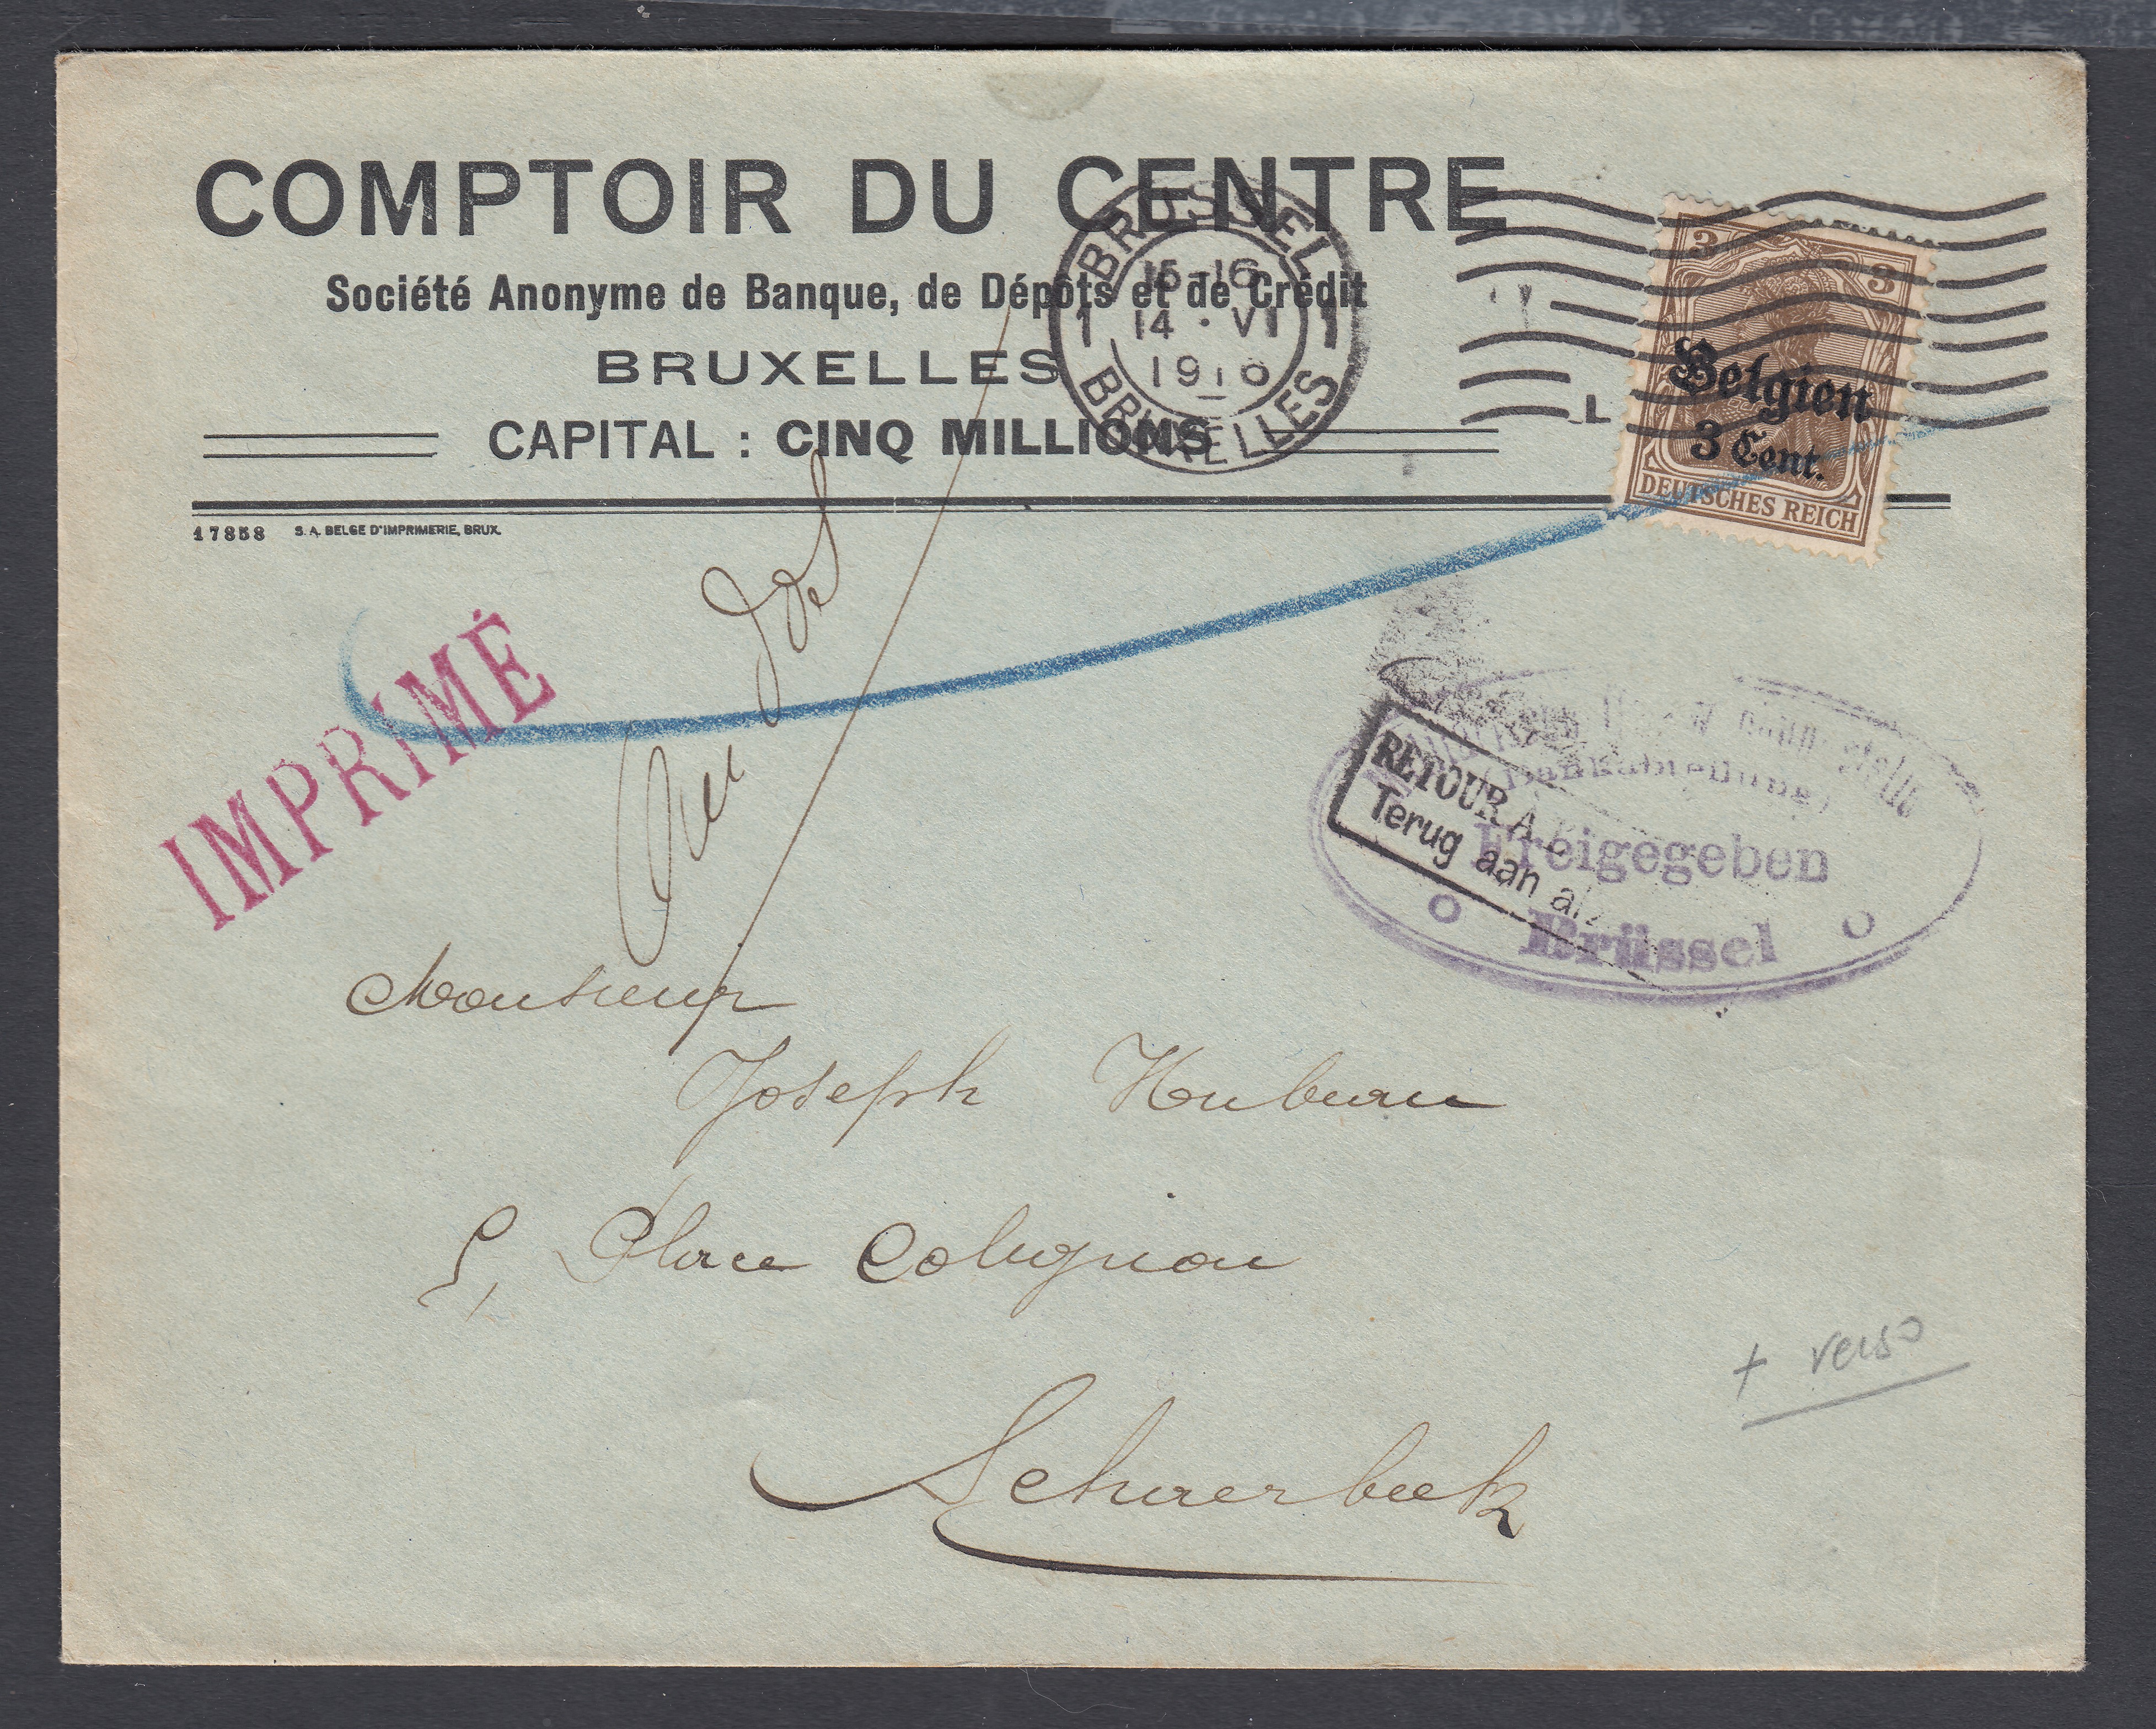 COMPTOIR DU CENTRE
Société Anonyme de Banque, de Dépôts et de Crédit
BRUXELLES
CAPITAL : CINQ MILLIONS
17858 S. A. BELGE D'IMPRIMERIE, BRUX.
BRUSSEL
15-16
1 14 · VI 1
1916
BRUXELLES
3 3
Belgien
3 Cent.
DEUTSCHES REICH
IMPRIMÉ
Au dos
RETOUR A
Terug aan
Freigegeben
Brüssel
Monsieur
Joseph Hubeau
5, Place Colignon
Schaerbeek
+ verso